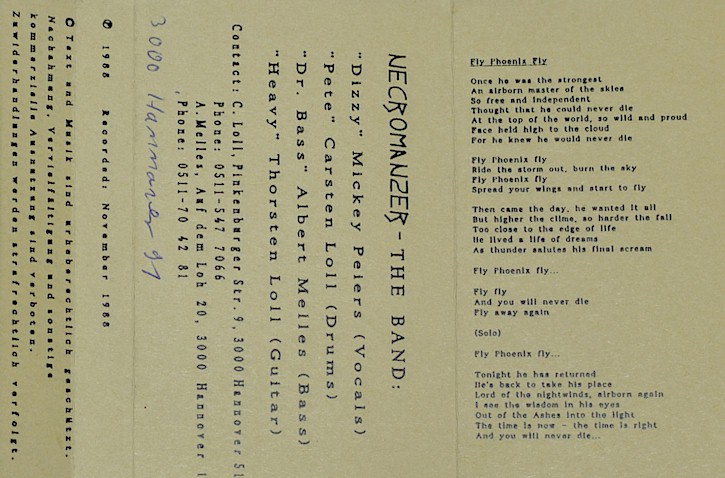 NECROMANZER - THE BAND:
"Dizzy" Mickey Peiers (Vocals)
"Pete" Carsten Loll (Drums)
"Dr. Bass" Albert Melles (Bass)
"Heavy" Thorsten Loll (Guitar)
Contact: C. Loll, Pinkenburger Str. 9, 3000 Hannover 51
Phone: 0511-547 7066
A. Melles, Auf dem Loh 20, 3000 Hannover 1
Phone: 0511-70 42 81
3000 Hannover 91
℗ 1988 Recorded: November 1988
© Text und Musik sind urheberechtlich geschützt.
Nachahmung, Vervielfältigung und sonstige
kommerzielle Ausnutzung sind verboten.
Zuwiderhandlungen werden strafrechtlich verfolgt.
Fly Phoenix Fly
Once he was the strongest
An airborn master of the skies
So free and independent
Thought that he could never die
At the top of the world, so wild and proud
Face held high to the cloud
For he knew he would never die
Fly Phoenix fly
Ride the storm out, burn the sky
Fly Phoenix fly
Spread your wings and start to fly
Then came the day, he wanted it all
But higher the clime, so harder the fall
Too close to the edge of life
He lived a life of dreams
As thunder salutes his final scream
Fly Phoenix fly...
Fly fly
And you will never die
Fly away again
(Solo)
Fly Phoenix fly...
Tonight he has returned
He's back to take his place
Lord of the nightwinds, airborn again
I see the wisdom in his eyes
Out of the Ashes into the light
The time is now - the time is right
And you will never die...